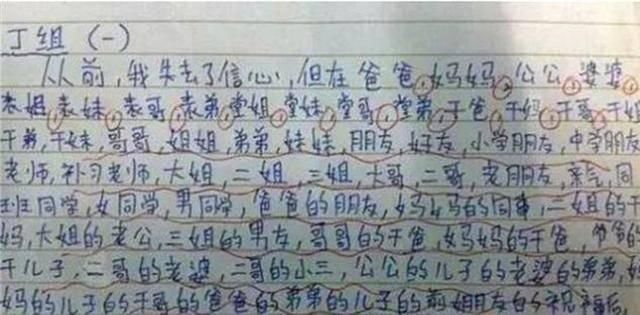 丁组 (一)
从前，我失去了信心，但在爸爸，妈妈，公公，婆婆，
表姐，表妹，表哥，表弟，堂姐，堂妹，堂哥，堂弟，干爸，干妈，干哥，干姐
干弟，干妹，哥哥，姐姐，弟弟，妹妹，朋友，好友，小学朋友，中学朋友
老师，补习老师，大姐，二姐，三姐，大哥，二哥，老朋友，亲气，同
班同学，女同学，男同学，爸爸的朋友，妈妈的同事，二姐的干
妈，大姐的老公，三姐的男友，哥哥的干爸，妈妈的干爸，爷爷的
干儿子，二哥的老婆，二哥的小三，公公的儿子的老婆的弟弟，
妈的儿子的干哥的爸爸的弟弟的儿子的前朋友的祝福后，